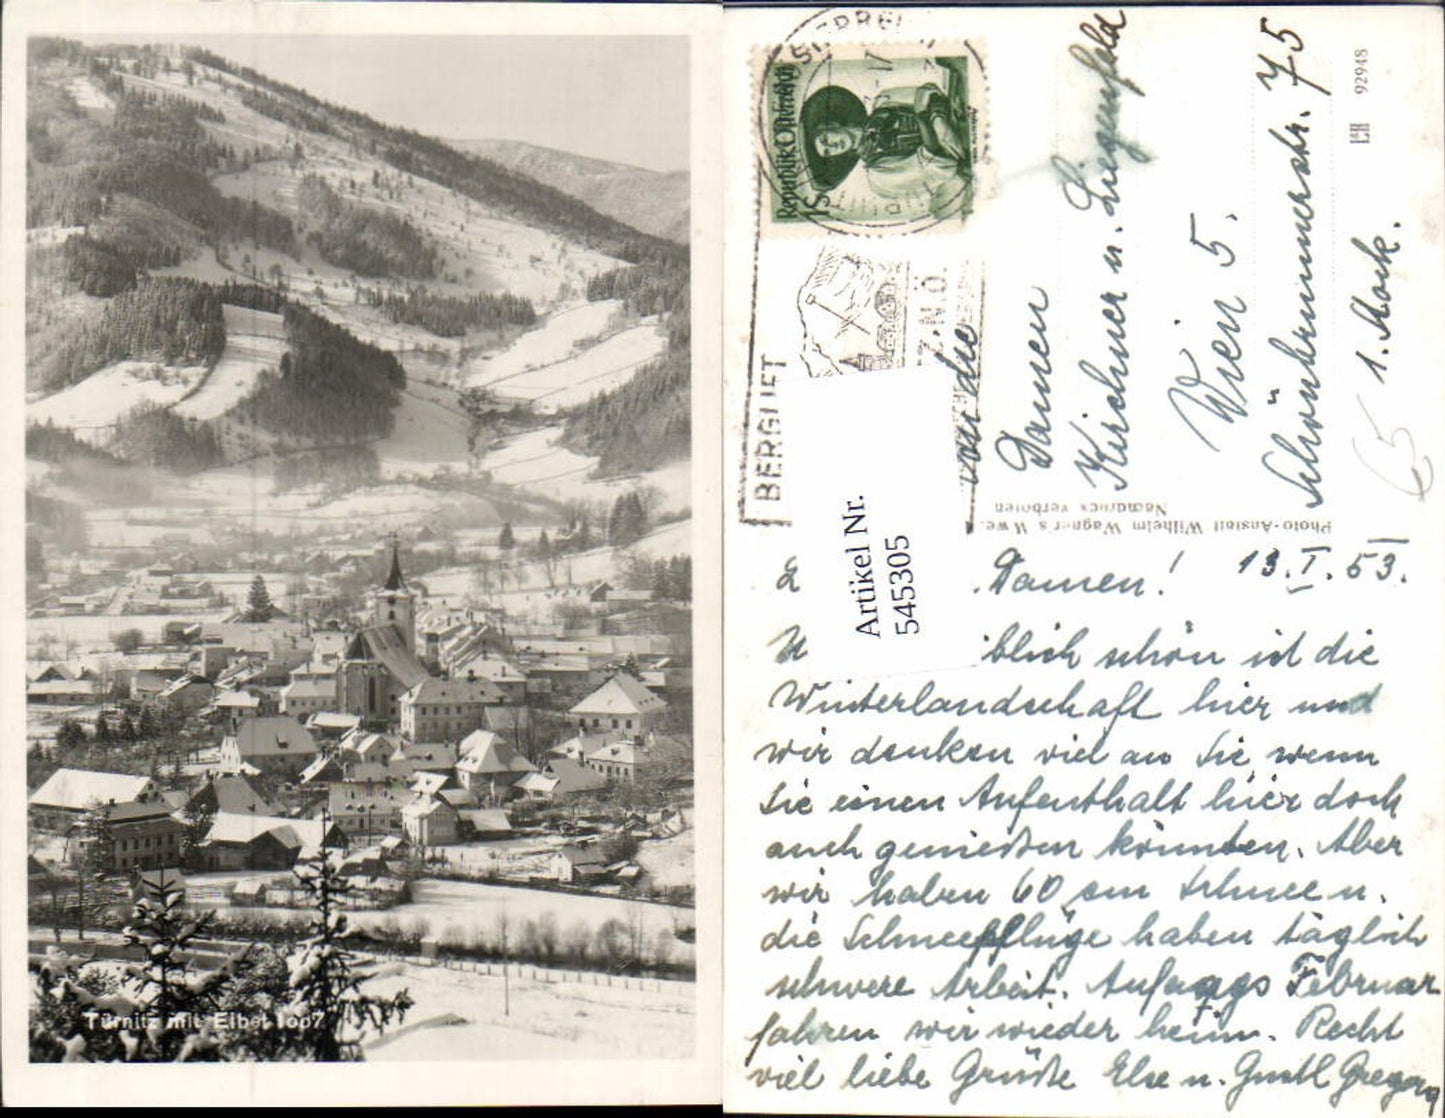 Türnitz mit Eibel 1007
Republik Österreich
BERGLIFT
Z. N.Ö.
Artikel Nr.
545305
An die
Damen
Kirchner u. Liegenfeld
Wien 5.
Schönbrunnerstr. 75
1. Stock.
65
92948
Photo-Anstalt Wilhelm Wagner's Wwe.
Nachdruck verboten
13. I. 53.
L
Damen!
U iblich schön ist die
Winterlandschaft hier und
wir denken viel an Sie wenn
Sie einen Aufenthalt hier doch
auch genießen könnten. Aber
wir haben 60 cm Schnee u.
die Schneepflüge haben täglich
schwere Arbeit. Anfangs Februar
fahren wir wieder heim. Recht
viel liebe Grüße Else u. Gustl Gregora